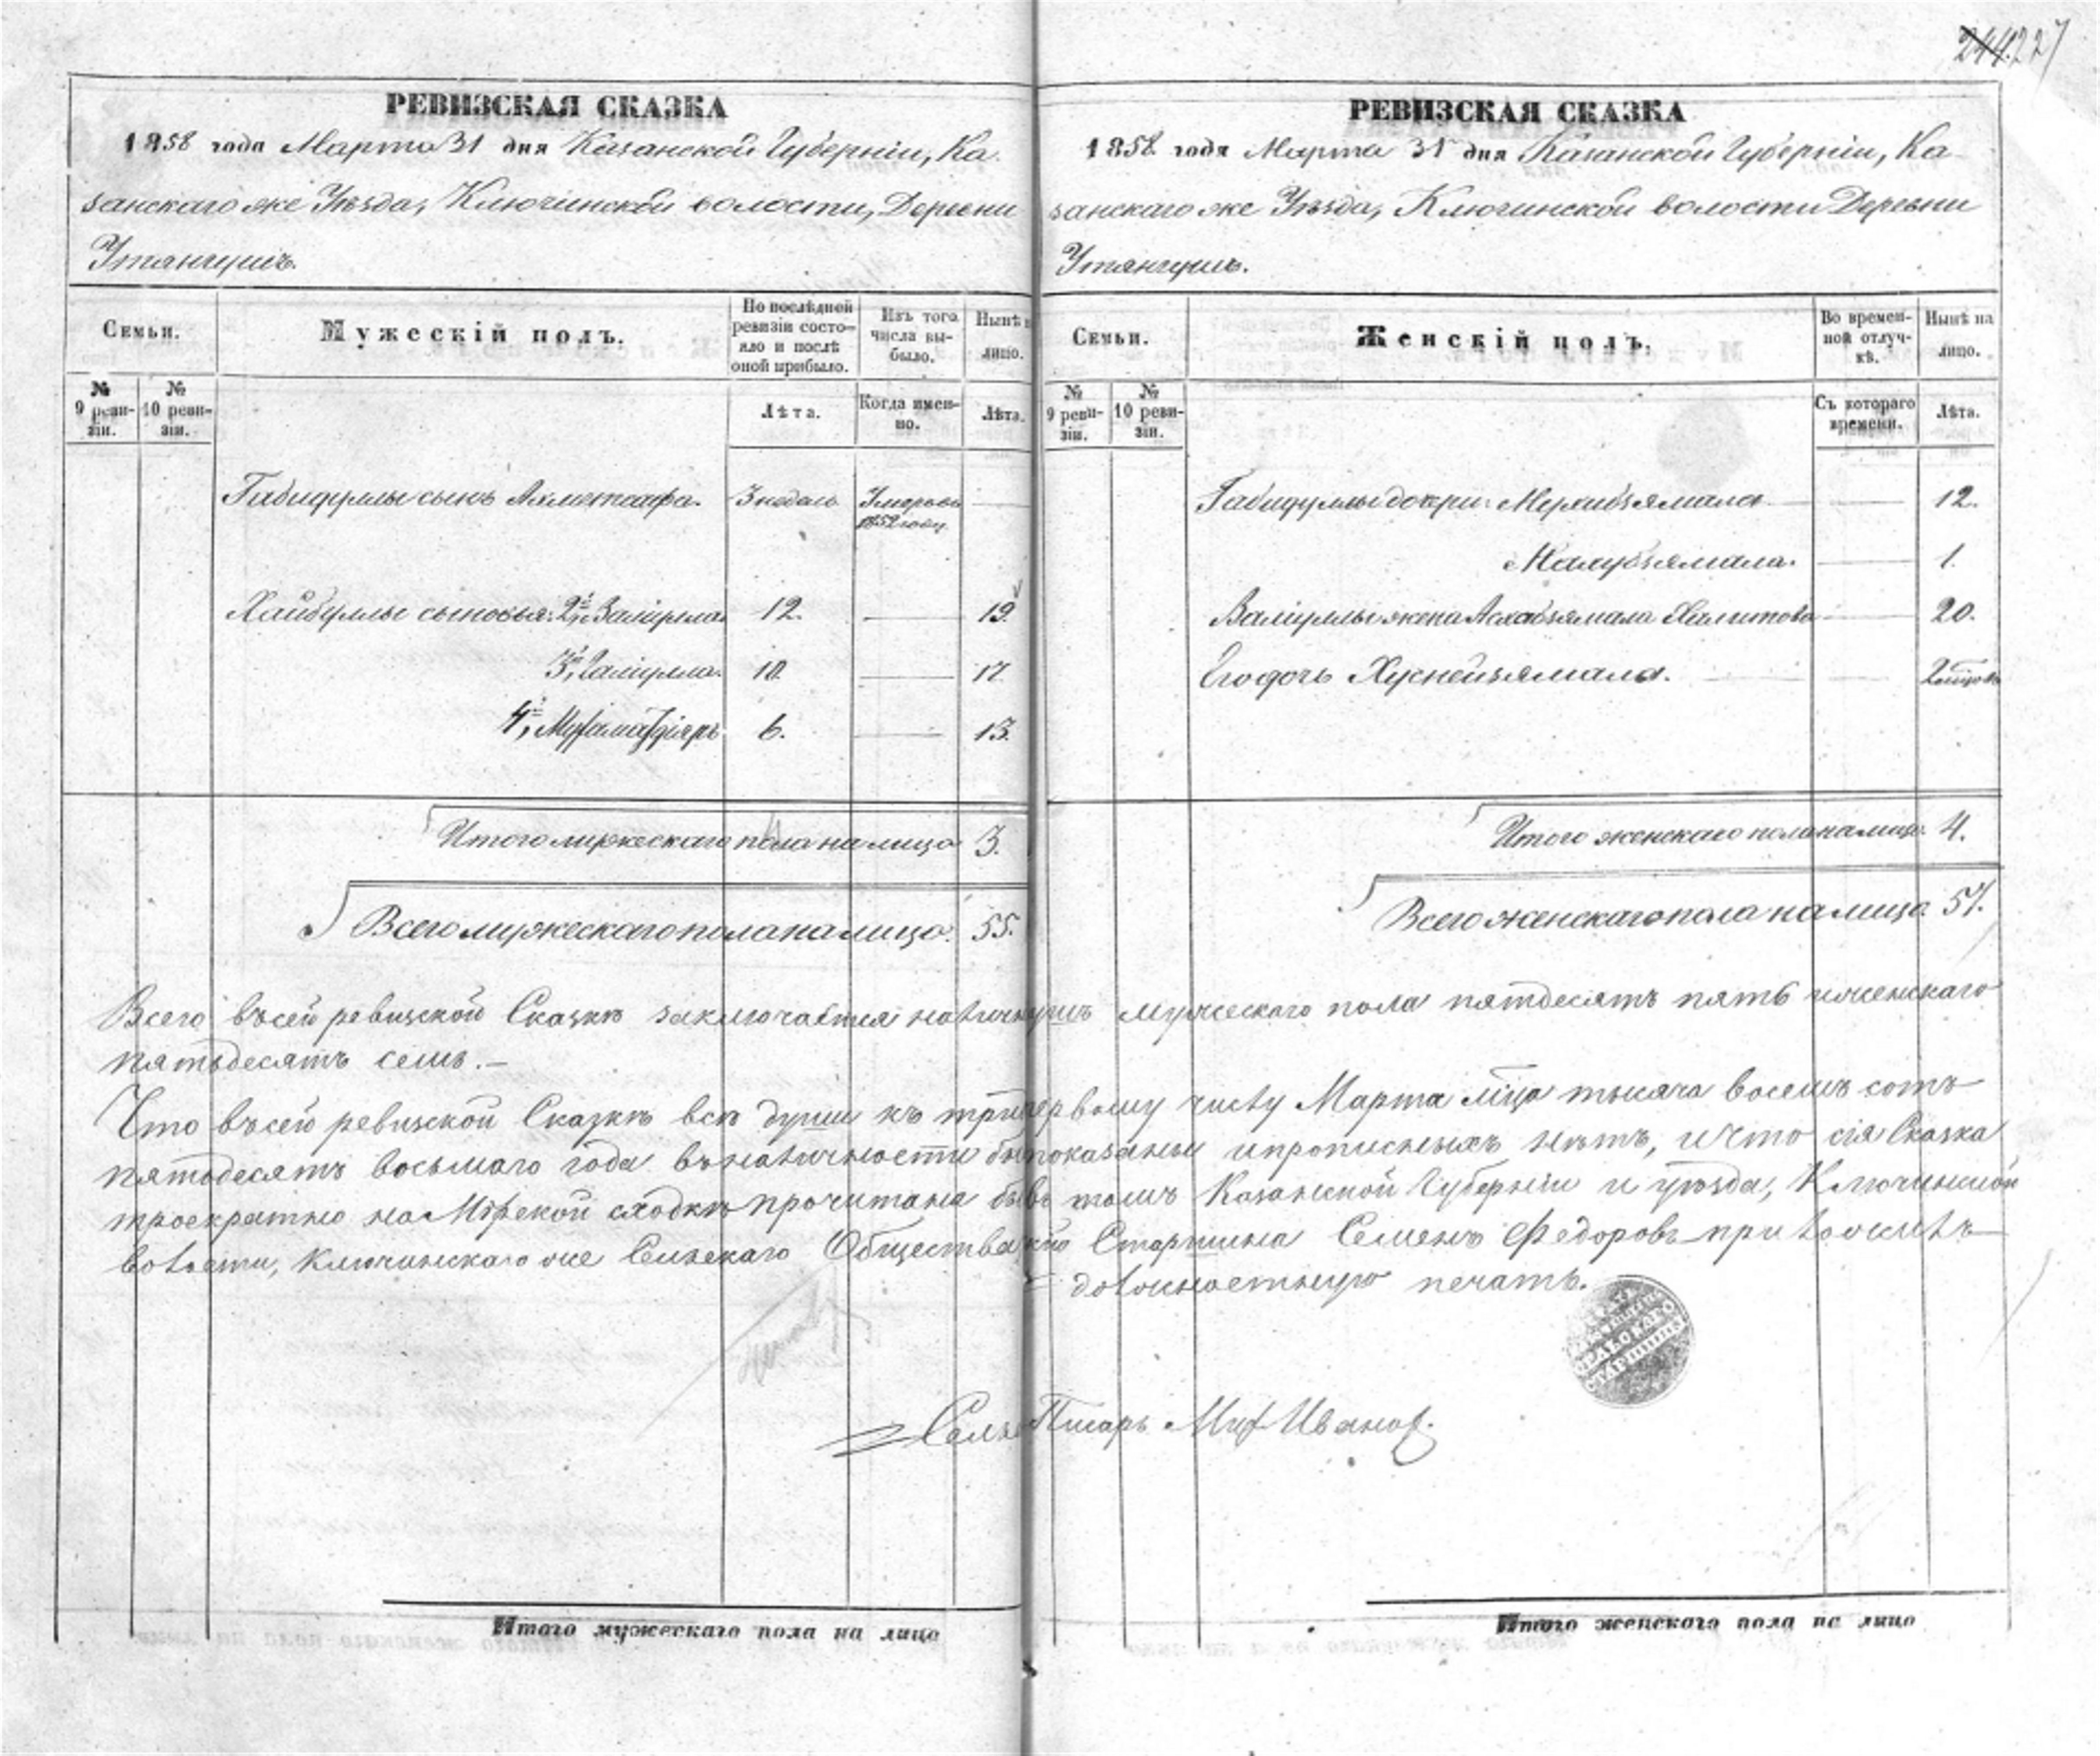 227
РЕВИЗСКАЯ СКАЗКА
1858 года Марта 31 дня Казанской Губерніи, Ка-
занскаго же Уѣзда, Ключинской волости, Деревни
Утянгушъ.
Семьи.
Мужескій полъ.
По послѣдней ревизіи состояло и послѣ оной прибыло.
Изъ того числа выбыло.
Нынѣ на лицо.
№ 9 ревизіи.
№ 10 ревизіи.
Лѣта.
Когда именно.
Лѣта.
Габидуллы сынъ Ахметсафа. 3 недель Умеръ въ 1852 году
Хайбуллы сыновья: 2й Валиулла 12. 19.
3й, Галиулла. 10. 17
4й, 6. 13.
Итого мужескаго пола на лицо 3.
Всего мужескаго пола на лицо. 55.
РЕВИЗСКАЯ СКАЗКА
1858 года Марта 31 дня Казанской Губерніи, Ка-
занскаго же Уѣзда, Ключинской волости Деревни
Утянгушъ.
Семьи.
Женскій полъ.
Во временной отлучкѣ.
Нынѣ на лицо.
№ 9 ревизіи.
№ 10 ревизіи.
Съ котораго времени.
Лѣта.
Габидуллы дочери: 12.
1.
Валиуллы жена Халитова 20.
Его дочь Хуснейзямала.
Итого женскаго пола на лицо 4.
Всего женскаго пола на лицо 57.
Всего въ сей ревизской Сказкѣ заключается наличныхъ мужескаго пола пятдесятъ пять и женскаго
пятьдесятъ семь.—
Что въ сей ревизской Сказкѣ всѣ души къ тридцать первому числу Марта м͠ца тысяча восемь сотъ
пятьдесятъ восьмаго года въ наличности показаны и прописныхъ нѣтъ, и что сія Сказка
троекратно на Мірской сходкѣ прочитана бывъ томъ Казанской Губерніи и уѣзда, Ключинской
волости, Ключинскаго же Сельскаго Общества Старшина Семенъ Федоровъ приложилъ
должностную печать.
СЕЛЬСКАГО СТАРШИНЫ
Сельс Писарь Иванов.
Итого мужескаго пола на лицо
Итого женскаго пола на лицо